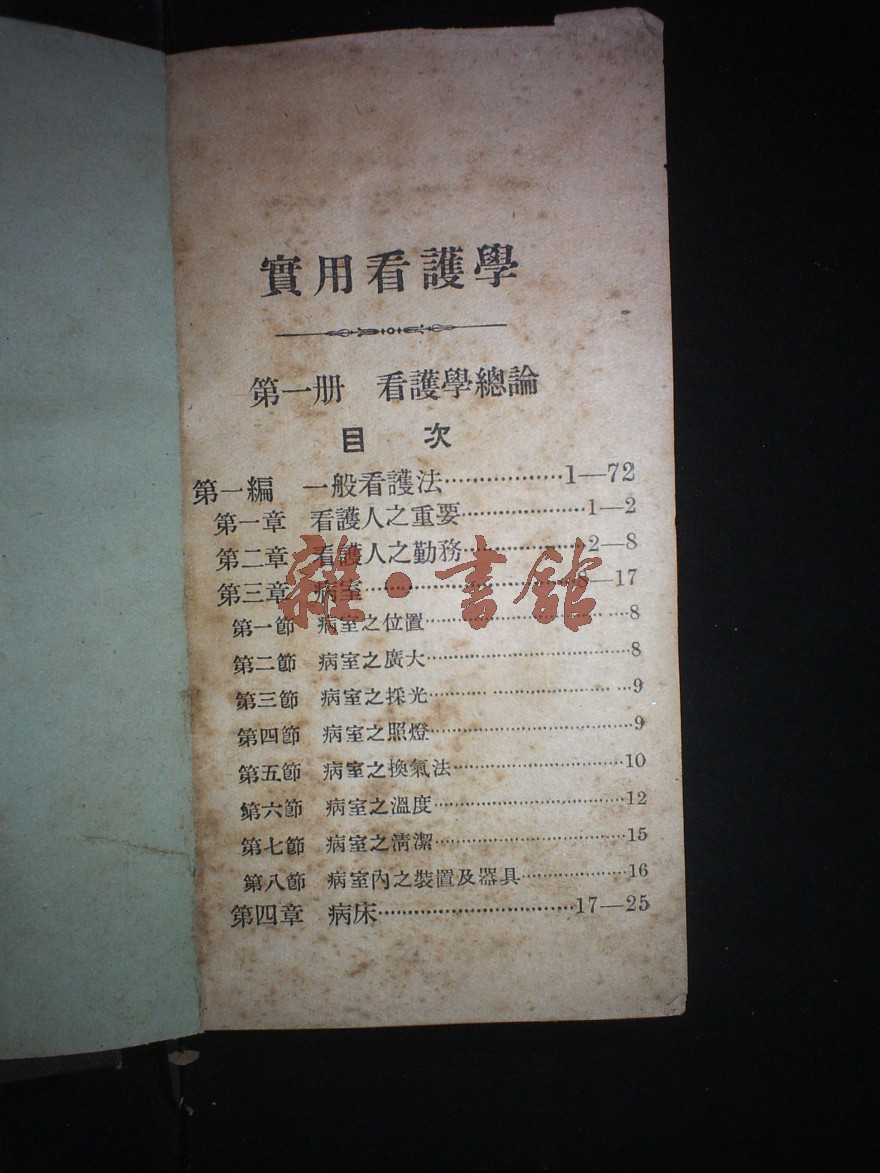 實用看護學
第一册 看護學總論
目 次
第一編 一般看護法………………1—72
第一章 看護人之重要…………………1—2
第二章 看護人之勤務………………2—8
第三章 病室………………………………8—17
第一節 病室之位置……………………………8
第二節 病室之廣大……………………………8
第三節 病室之採光……………………………9
第四節 病室之照燈……………………………9
第五節 病室之換氣法…………………………10
第六節 病室之溫度……………………………12
第七節 病室之清潔……………………………15
第八節 病室內之裝置及器具…………………16
第四章 病床……………………………17—25
雜·書館